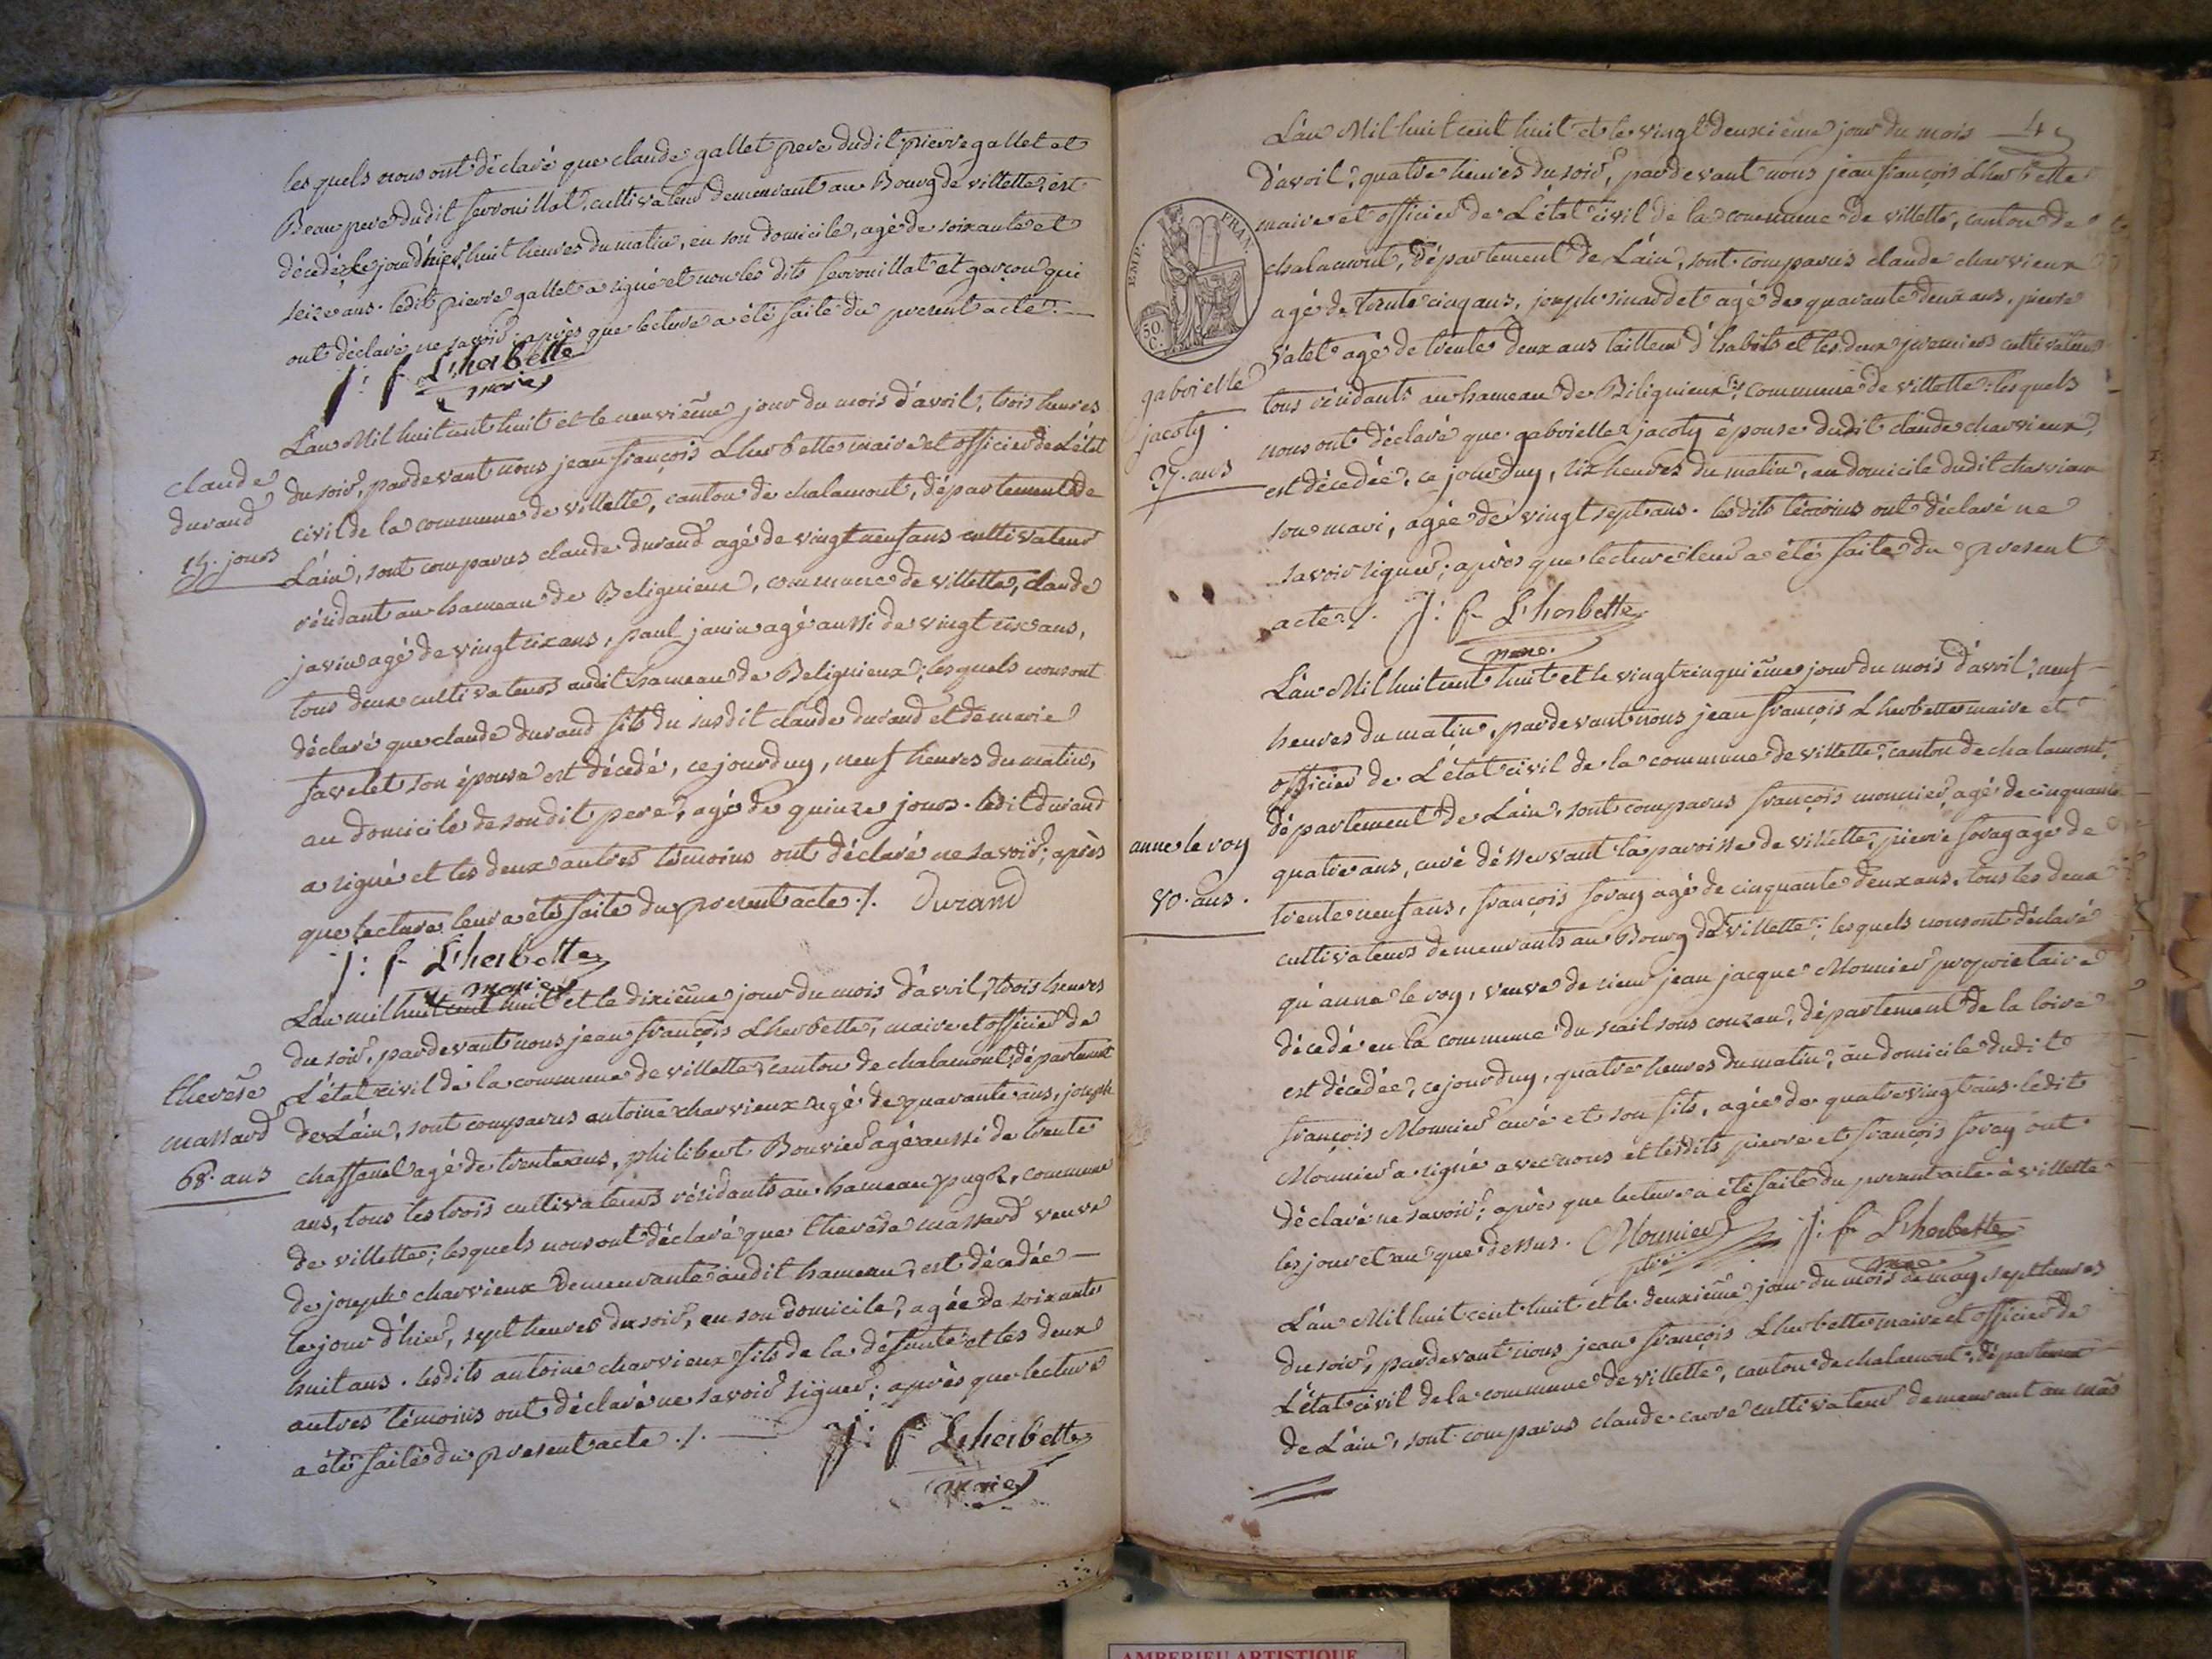 les quels nous ont déclaré que claude gallet pere dudit pierre gallet et
Beau pere dudit servouillat, cultivateur demeurant au Bourg de villette, est
décédé, le jour d'hier, huit heures du matin, en son domicile, agé de soixante et
seize ans. ledit pierre gallet a signé et non les dits servouillat et garçon qui
ont déclaré ne savoir; après que lecture a été faite du present acte.
J: f Lherbette
maire
claude
durand
15. jours
L'an Mil huit cent huit et le neuvième jour du mois d'avril, trois heures
du soir, pardevant nous jean françois Lherbette maire et officier de L'état
civil de la commune de villette, canton de chalamont, département de
L'ain, sont comparus claude durand agé de vingt neuf ans cultivateur
résidant au hameau de Beligneux, commune de villette, claude
janin agé de vingt six ans, paul janin agé aussi de vingt six ans,
tous deux cultivateurs audit hameau de Beligneux; les quels nous ont
déclaré que claude durand fils du susdit claude durand et de marie
favelet son épouse est décédé, ce jourduy, neuf heures du matin,
au domicile de son dit pere, agé de quinze jours. ledit durand
a signé et les deux autres témoins ont déclaré ne savoir; après
que lecture leur a été faite du present acte ./. Durand
J: f Lherbette
maire
therése
massard
68. ans
L'an mil huit cent huit et le dixième jour du mois d'avril, trois heures
du soir, pardevant nous jean françois Lherbette, maire et officier de
L'état civil de la commune de villette, canton de chalamont, département
de L'ain, sont comparus antoine charvieux agé de quarante ans, joseph
chassenel agé de trente ans, philibert Bouvier agé aussi de trente
ans, tous les trois cultivateurs résidants au hameau pugoz, commune
de villette; lesquels nous ont déclaré que therése massard veuve
de joseph charvieux demeurante audit hameau, est décédée
le jour d'hier, sept heures du soir, en son domicile, agée de soixante
huit ans. lesdits antoine charvieux fils de la défunte et les deux
autres témoins ont déclaré ne savoir signer; après que lecture
a été faite du present acte ./.
J: f Lherbette
maire
4
EMP. FRAN.
50. C.
L'an Mil huit cent huit et le vingt deuxième jour du mois
d'avril, quatre heures du soir, pardevant nous jean françois Lherbette
maire et officier de L'état civil de la commune de villette, canton de
chalamont, département de L'ain, sont comparus claude charvieux
agé de trente cinq ans, joseph sinardet agé de quarante deux ans, pierre
vatet agé de trente deux ans tailleur d'habits et les deux premiers cultivateurs
tous résidants au hameau de Biligneux, commune de villette: lesquels
nous ont déclaré que gabrielle jacoty épouse dudit claude charvieux,
est décédée, ce jourduy, six heures du matin, au domicile dudit charvieux
son mari, agée de vingt sept ans. lesdits témoins ont déclaré ne
savoir signer; après que lecture leur a été faite du present
acte ./. J: f Lherbette
maire
gabrielle
jacoty.
27. ans
L'an Mil huit cent huit et le vingt cinquième jour du mois d'avril, neuf
heures du matin, pardevant nous jean françois Lherbette maire et
officier de L'état civil de la commune de villette, canton de chalamont,
département de L'ain, sont comparus françois monnier, agé de cinquante
quatre ans, curé désservant la paroisse de villette, pierre foray agé de
trente neuf ans, françois foray agé de cinquante deux ans, tous les deux
cultivateurs demeurants au Bourg de villette; lesquels nous ont déclaré
qu'anne le roy, veuve de sieur jean jacque Monnier proprietaire
décedé en la commune du sail sous couzan, département de la loire
est décédée, ce jourduy, quatre heures du matin, au domicile dudit
françois Monnier curé et son fils, agée de quatre vingt ans. ledit
Monnier a signé avec nous et lesdits pierre et françois foray ont
déclaré ne savoir; après que lecture a été faite du present acte à villette
les jour et an que dessus. Monnier J: f Lherbette
ptre maire
anne le roy
80. ans.
L'an Mil huit cent huit et le deuxième jour du mois de may, sept heures
du soir, pardevant nous jean françois Lherbette maire et officier de
L'état civil de la commune de villette, canton de chalamont, département
de L'ain, sont comparus claude carre cultivateur demeurant au mas
AMBERIEU ARTISTIQUE